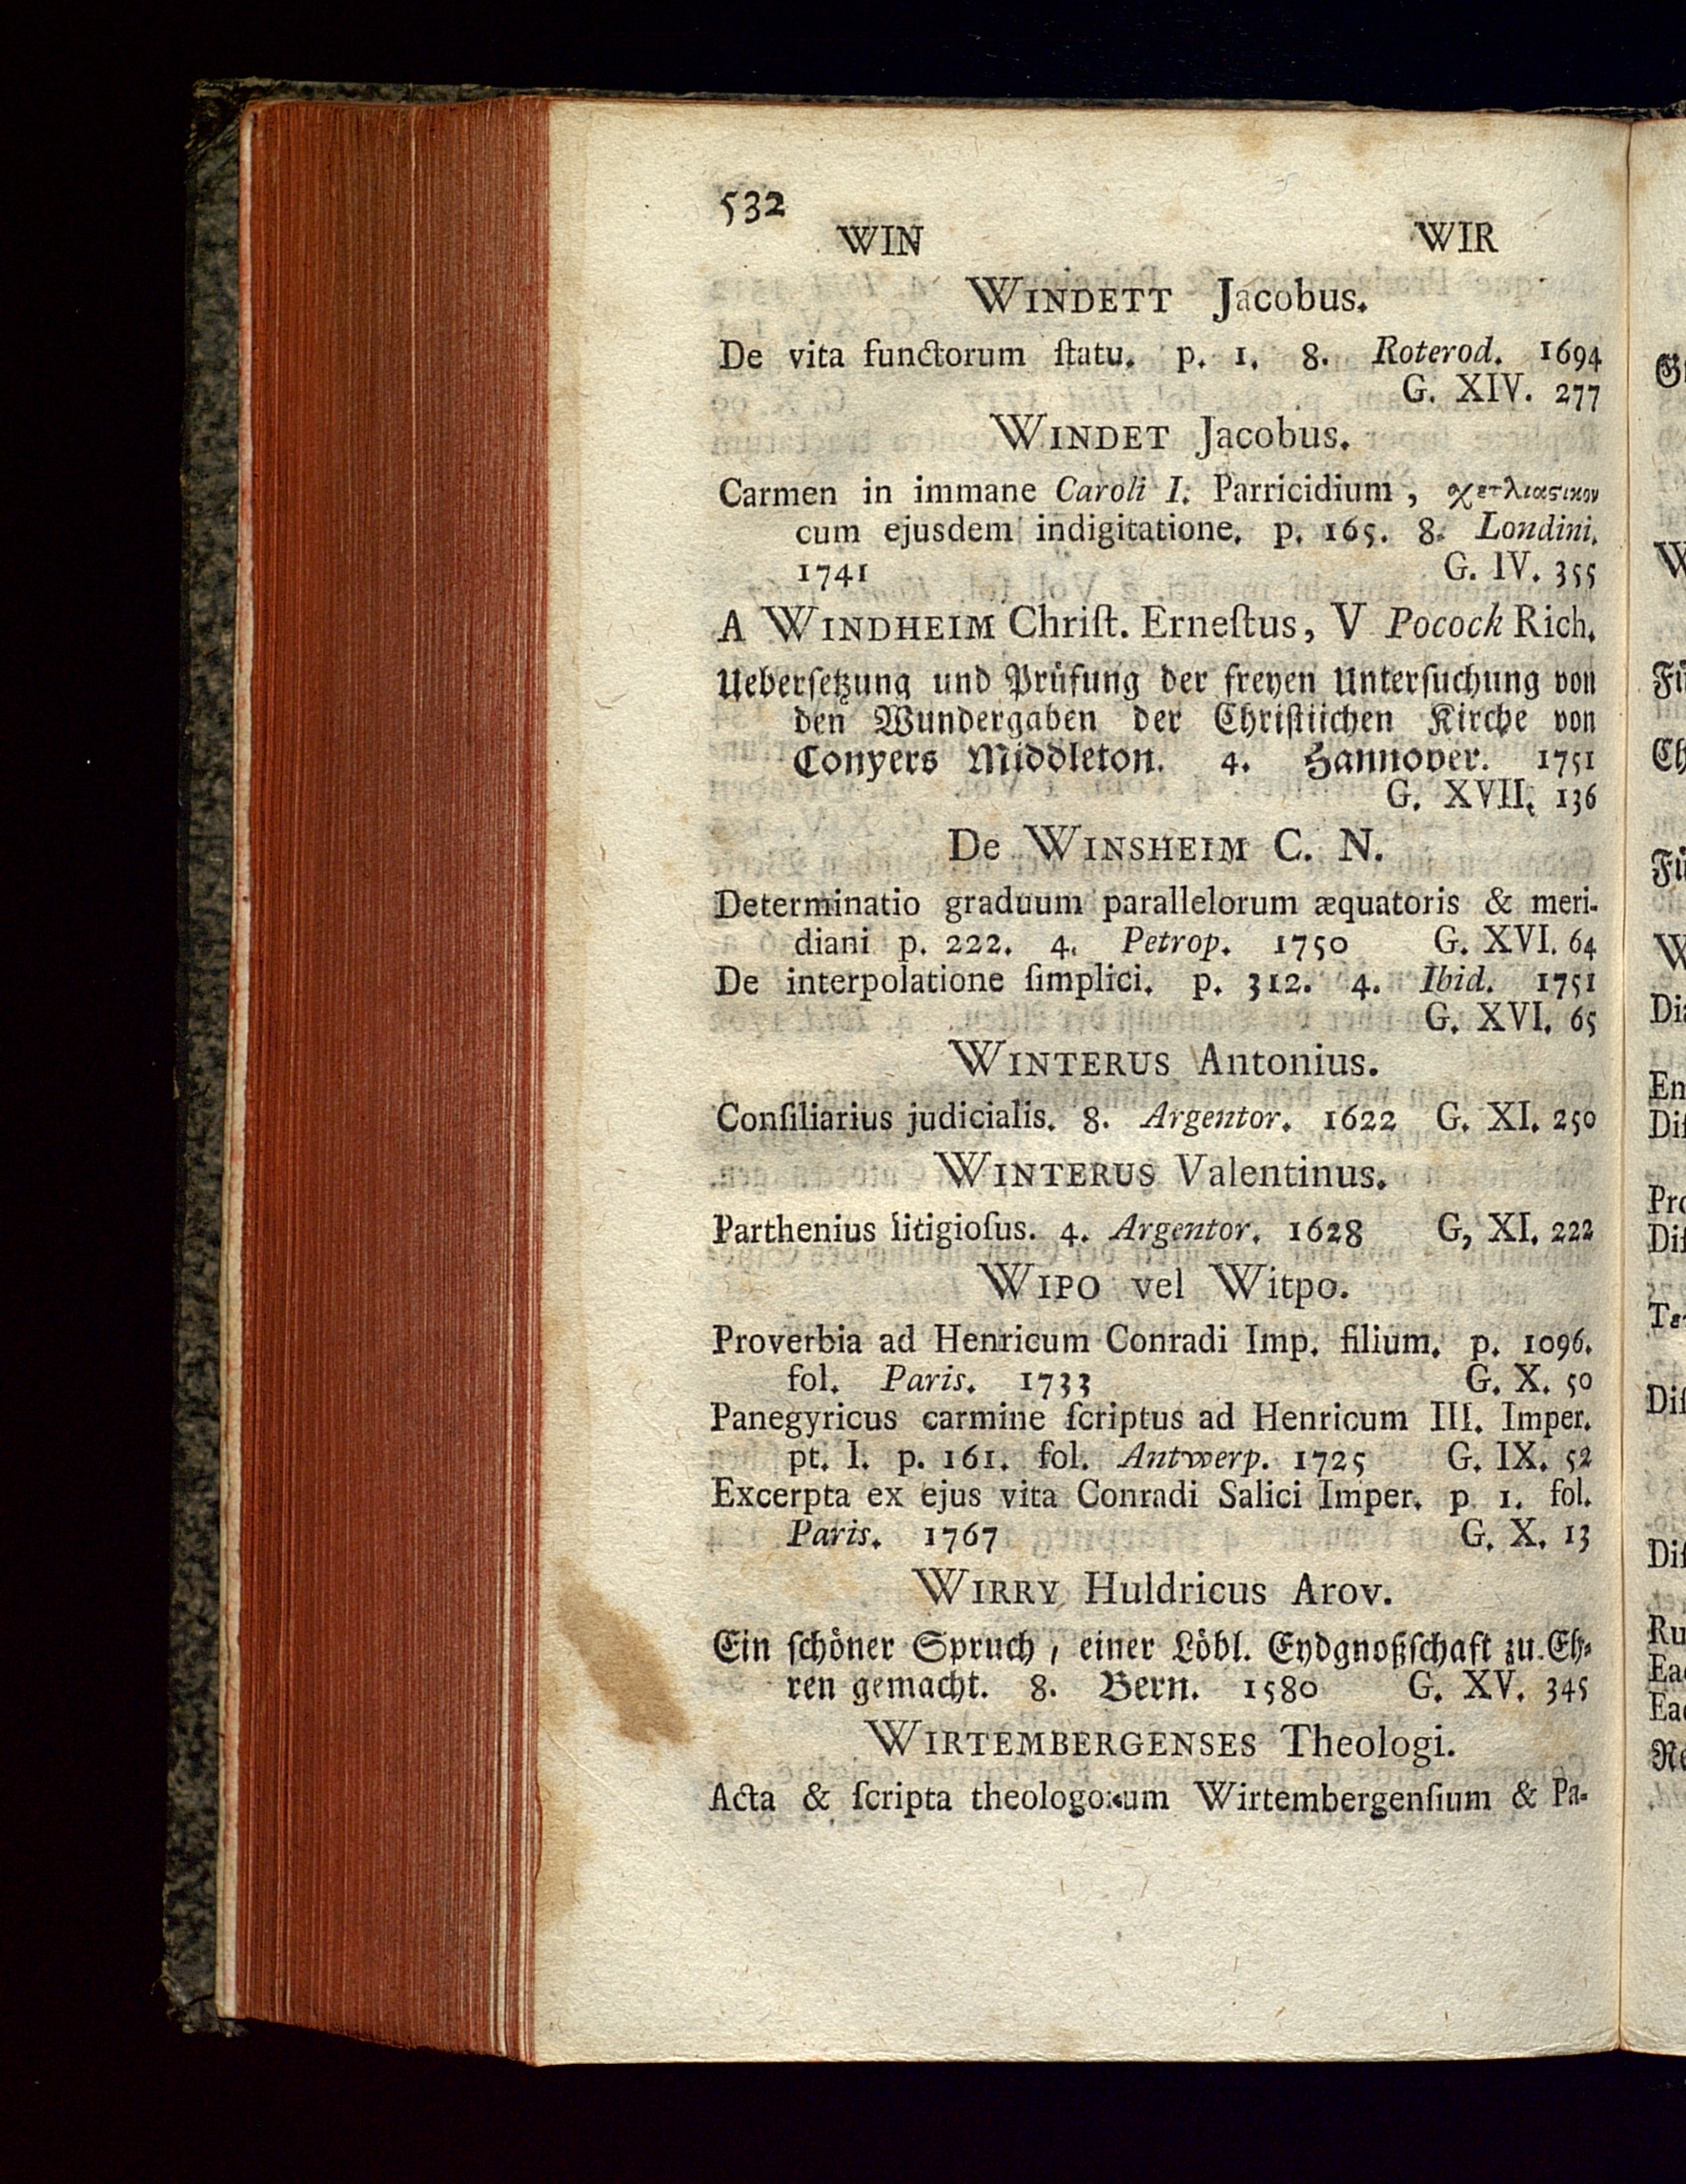 532
WIN WIR
WINDETT Jacobus.
De vita functorum ſtatu. p. 1. 8. Roterod. 1694
G. XIV. 277
WINDET Jacobus.
Carmen in immane Caroli I. Parricidium,
cum ejusdem indigitatione. p. 165. 8. Londini.
1741 G. IV. 355
A WINDHEIM Chriſt. Erneſtus, V Pocock Rich.
Ueberſetzung und Prüfung der freyen Unterſuchung von
den Wundergaben der Chriſtlichen Kirche von
Conyers Middleton. 4. Hannover. 1751
G. XVII. 136
De WINSHEIM C. N.
Determinatio graduum parallelorum æquatoris & meri-
diani p. 222. 4. Petrop. 1750 G. XVI. 64
De interpolatione ſimplici. p. 312. 4. Ibid. 1751
G. XVI. 65
WINTERUS Antonius.
Conſiliarius judicialis. 8. Argentor. 1622 G. XI. 250
WINTERUS Valentinus.
Parthenius litigioſus. 4. Argentor. 1628 G, XI. 222
WIPO vel Witpo.
Proverbia ad Henricum Conradi Imp. filium. p. 1096.
fol. Paris. 1733 G. X. 50
Panegyricus carmine ſcriptus ad Henricum III. Imper.
pt. I. p. 161. fol. Antwerp. 1725 G. IX. 52
Excerpta ex ejus vita Conradi Salici Imper. p 1. fol.
Paris. 1767 G. X. 13
WIRRY Huldricus Arov.
Ein ſchöner Spruch, einer Löbl. Eydgnoßſchaft zu Eh-
ren gemacht. 8. Bern. 1580 G. XV. 345
WIRTEMBERGENSES Theologi.
Acta & ſcripta theologorum Wirtembergenſium & Pa-